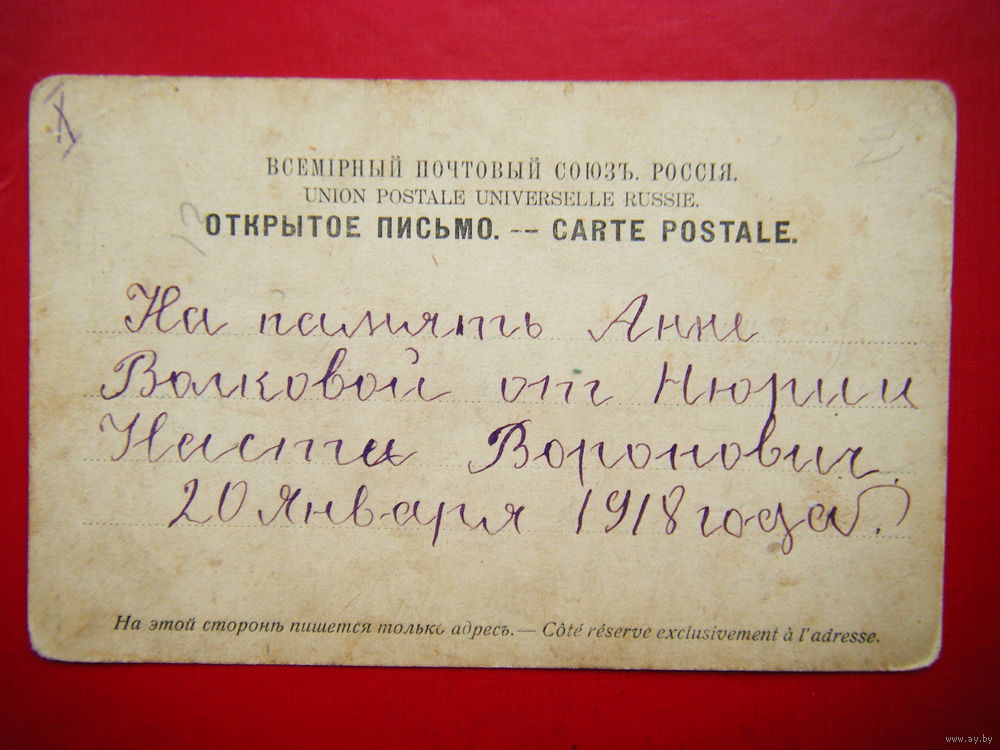 X
ВСЕМІРНЫЙ ПОЧТОВЫЙ СОЮЗЪ. РОССІЯ.
UNION POSTALE UNIVERSELLE RUSSIE.
ОТКРЫТОЕ ПИСЬМО. -- CARTE POSTALE.
На память Анне
Волковой от Нюрии
Насти Воронович.
20 Января 1918 года.
На этой сторонѣ пишется только адресъ. — Côté réserve exclusivement à l'adresse.
www.ay.by